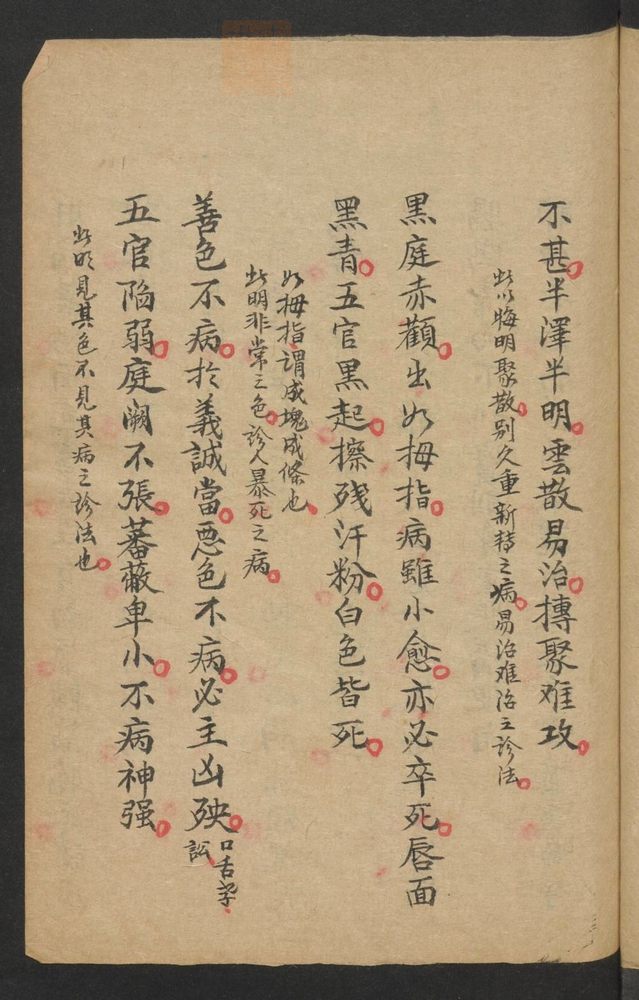 不甚半澤半明雲散易治摶聚难攻
此以晦明聚散别久重新轻之病易治难治之诊法
黑庭赤顴出如拇指病雖小愈亦必卒死唇面
黑青五官黑起擦残汗粉白色皆死
如拇指謂成塊成條也
此明非常之色诊人暴死之病
善色不病扵義誠當恶色不病必主凶殃
口舌
訟
五官陷弱庭阙不張蕃蔽卑小不病神强
此明見其色不見其病之诊法也